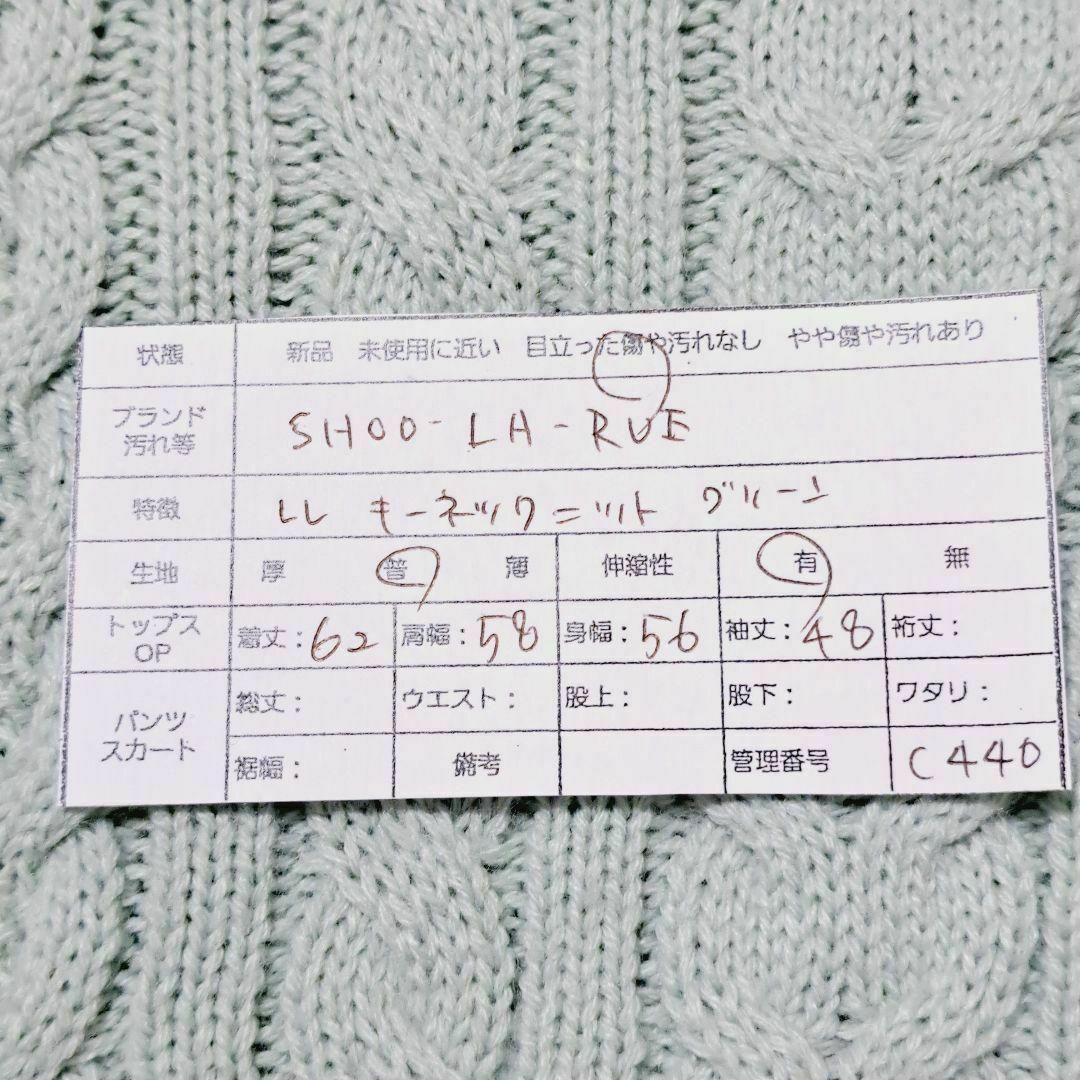 状態 新品 未使用に近い 目立った傷や汚れなし やや傷や汚れあり
ブランド
汚れ等 SHOO-LA-RUE
特徴 LL キーネックニット グリーン
生地 厚 普 薄 伸縮性 有 無
トップス
OP 着丈:62 肩幅:58 身幅:56 袖丈:48 裄丈:
パンツ
スカート 総丈: ウエスト: 股上: 股下: ワタリ:
裾幅: 備考 管理番号 C440